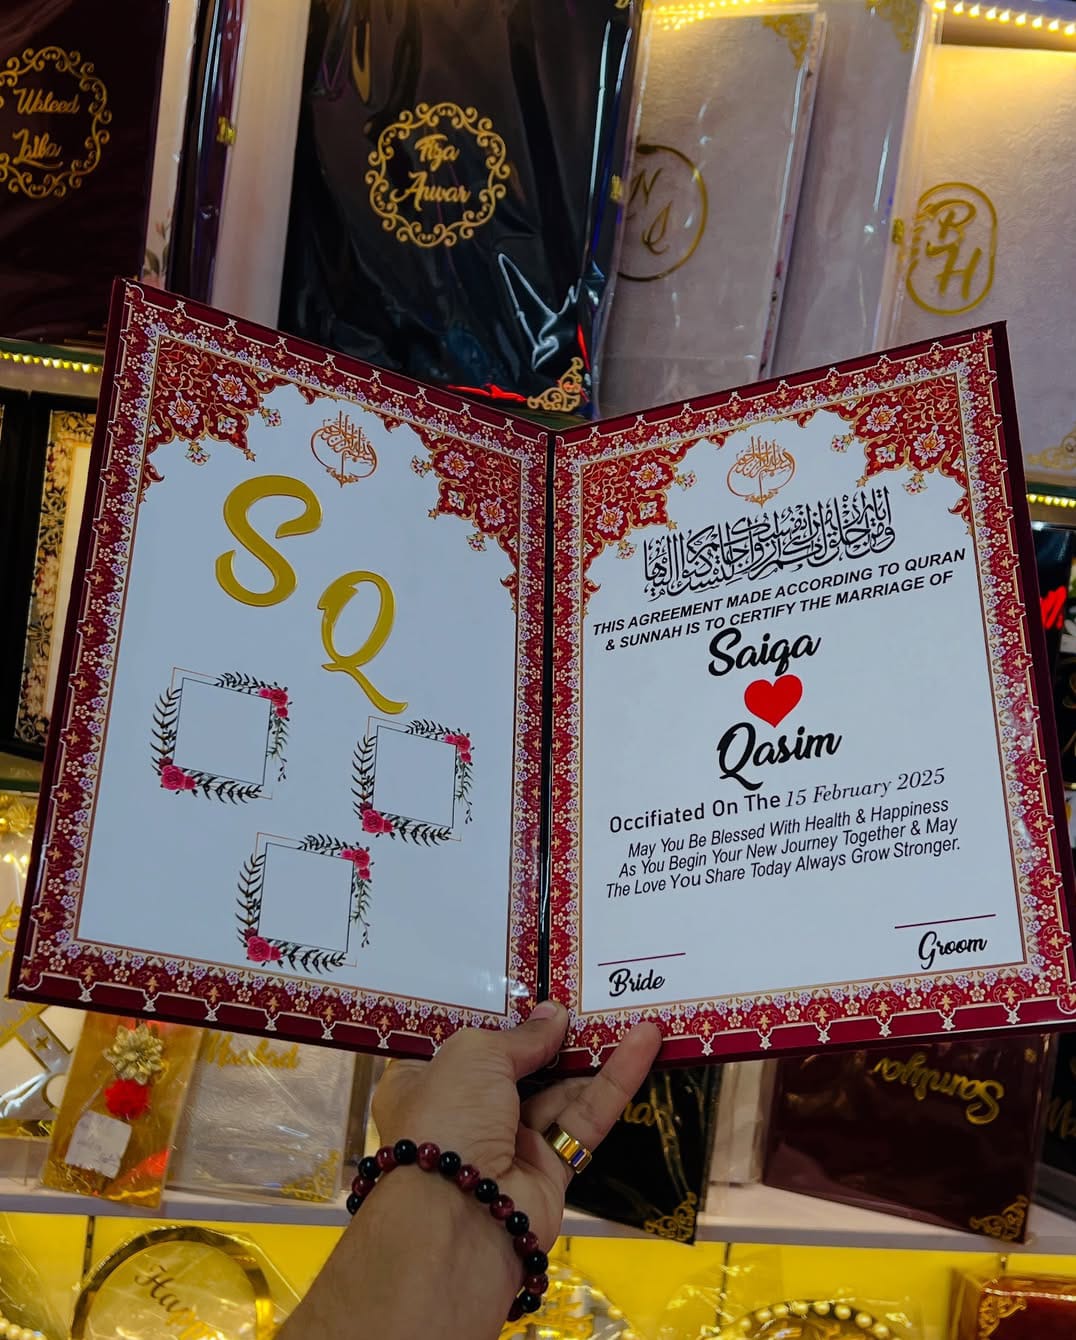 Waleed
Laiba
Fiza
Anwar
N
R
H
S
Q
بسم الله الرحمن الرحيم
بسم الله الرحمن الرحيم
ومن آياته أن خلق لكم من أنفسكم أزواجا لتسكنوا إليها
THIS AGREEMENT MADE ACCORDING TO QURAN
& SUNNAH IS TO CERTIFY THE MARRIAGE OF
Saiqa
Qasim
Occifiated On The 15 February 2025
May You Be Blessed With Health & Happiness
As You Begin Your New Journey Together & May
The Love You Share Today Always Grow Stronger.
Bride
Groom
Samiya